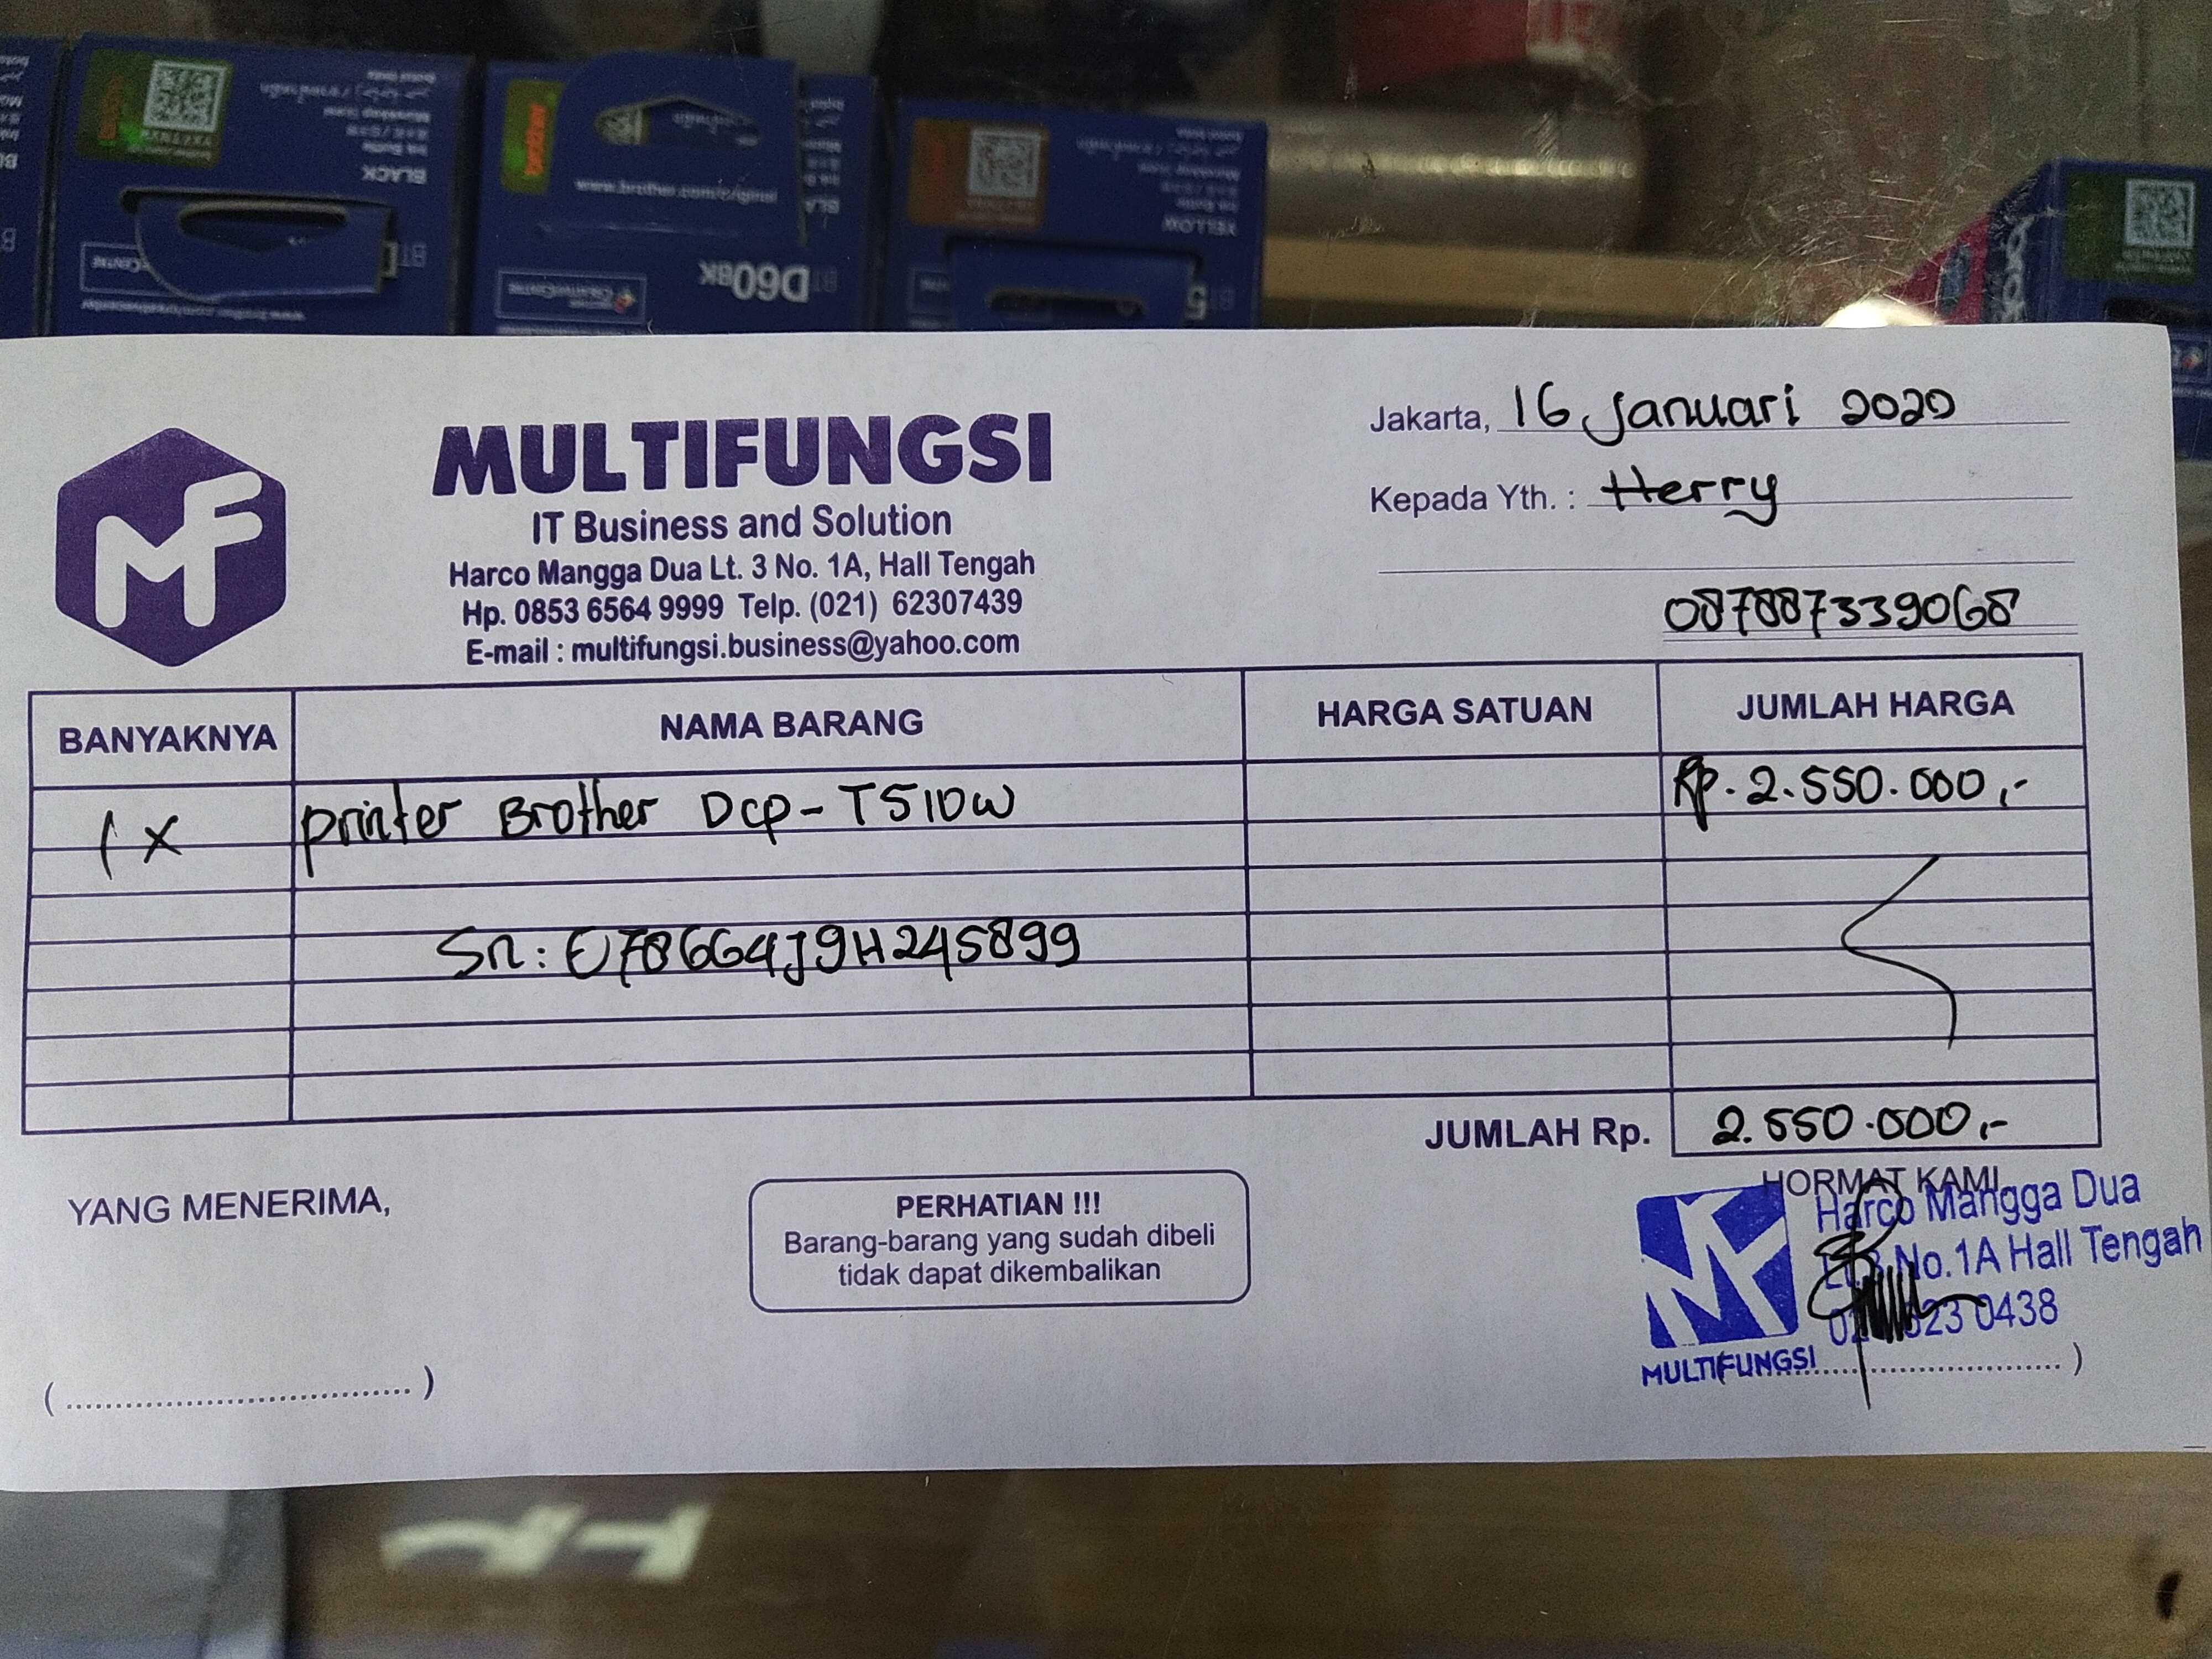 MF
MULTIFUNGSI
IT Business and Solution
Harco Mangga Dua Lt. 3 No. 1A, Hall Tengah
Hp. 0853 6564 9999 Telp. (021) 62307439
E-mail : multifungsi.business@yahoo.com
Jakarta, 16 Januari 2020
Kepada Yth. : Herry
087887339068
BANYAKNYA NAMA BARANG HARGA SATUAN JUMLAH HARGA
1 x printer Brother Dcp-T510W Rp. 2.550.000,-
Sn: E78664J9H245899
JUMLAH Rp. 2.550.000,-
YANG MENERIMA,
PERHATIAN !!!
Barang-barang yang sudah dibeli
tidak dapat dikembalikan
HORMAT KAMI
Harco Mangga Dua
No.1A Hall Tengah
0438
MULTIFUNGSI
(.................................)
BLACK
www.brother.com/original
D60BK
YELLOW
brother